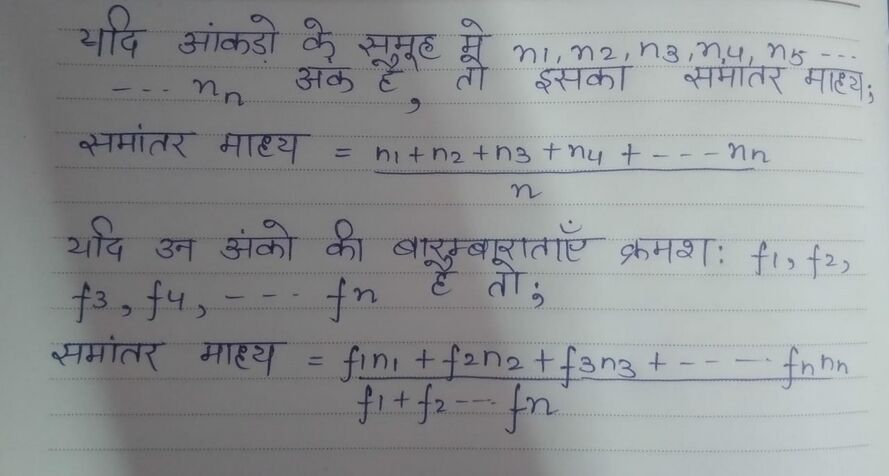 यदि आंकडो के समूह मे n1, n2, n3, n4, n5 ---
--- nn अंक है, तो इसका समांतर माध्य;
समांतर माध्य = n1 + n2 + n3 + n4 + --- nn
n
यदि उन अंको की बारुम्बाराताएँ क्रमश: f1, f2,
f3, f4, --- fn है तो;
समांतर माध्य = f1n1 + f2n2 + f3n3 + ---- fnnn
f1 + f2 --- fn